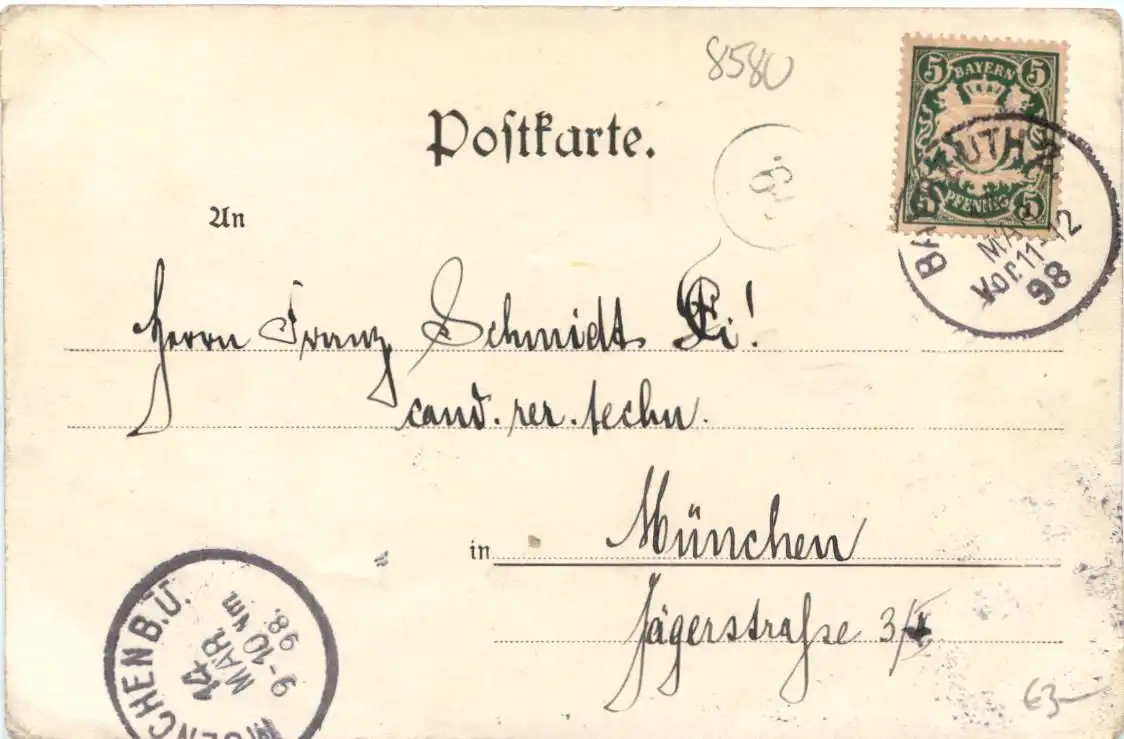 8580
5 BAYERN 5
5 PFENNIG 5
BAYREUTH
MAR
Vor. 11-12
98
Postkarte.
An
Herrn Franz Schmidt
cand. rer. techn.
in München
Jägerstraße 3/I
MUENCHEN B.Ü.
14
MAR.
9-10 Vm.
98.
63-